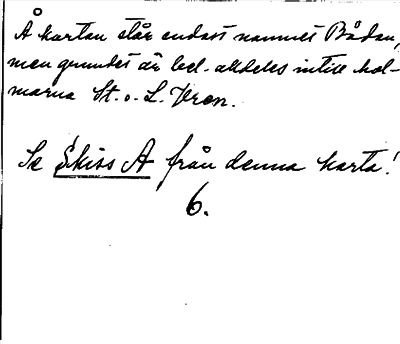 Å kartan står endast namnet Bådan,
men grundet är bel. alldeles intill hol-
marna St. o. L. Vren.
Se Skiss A från denna karta!
6.